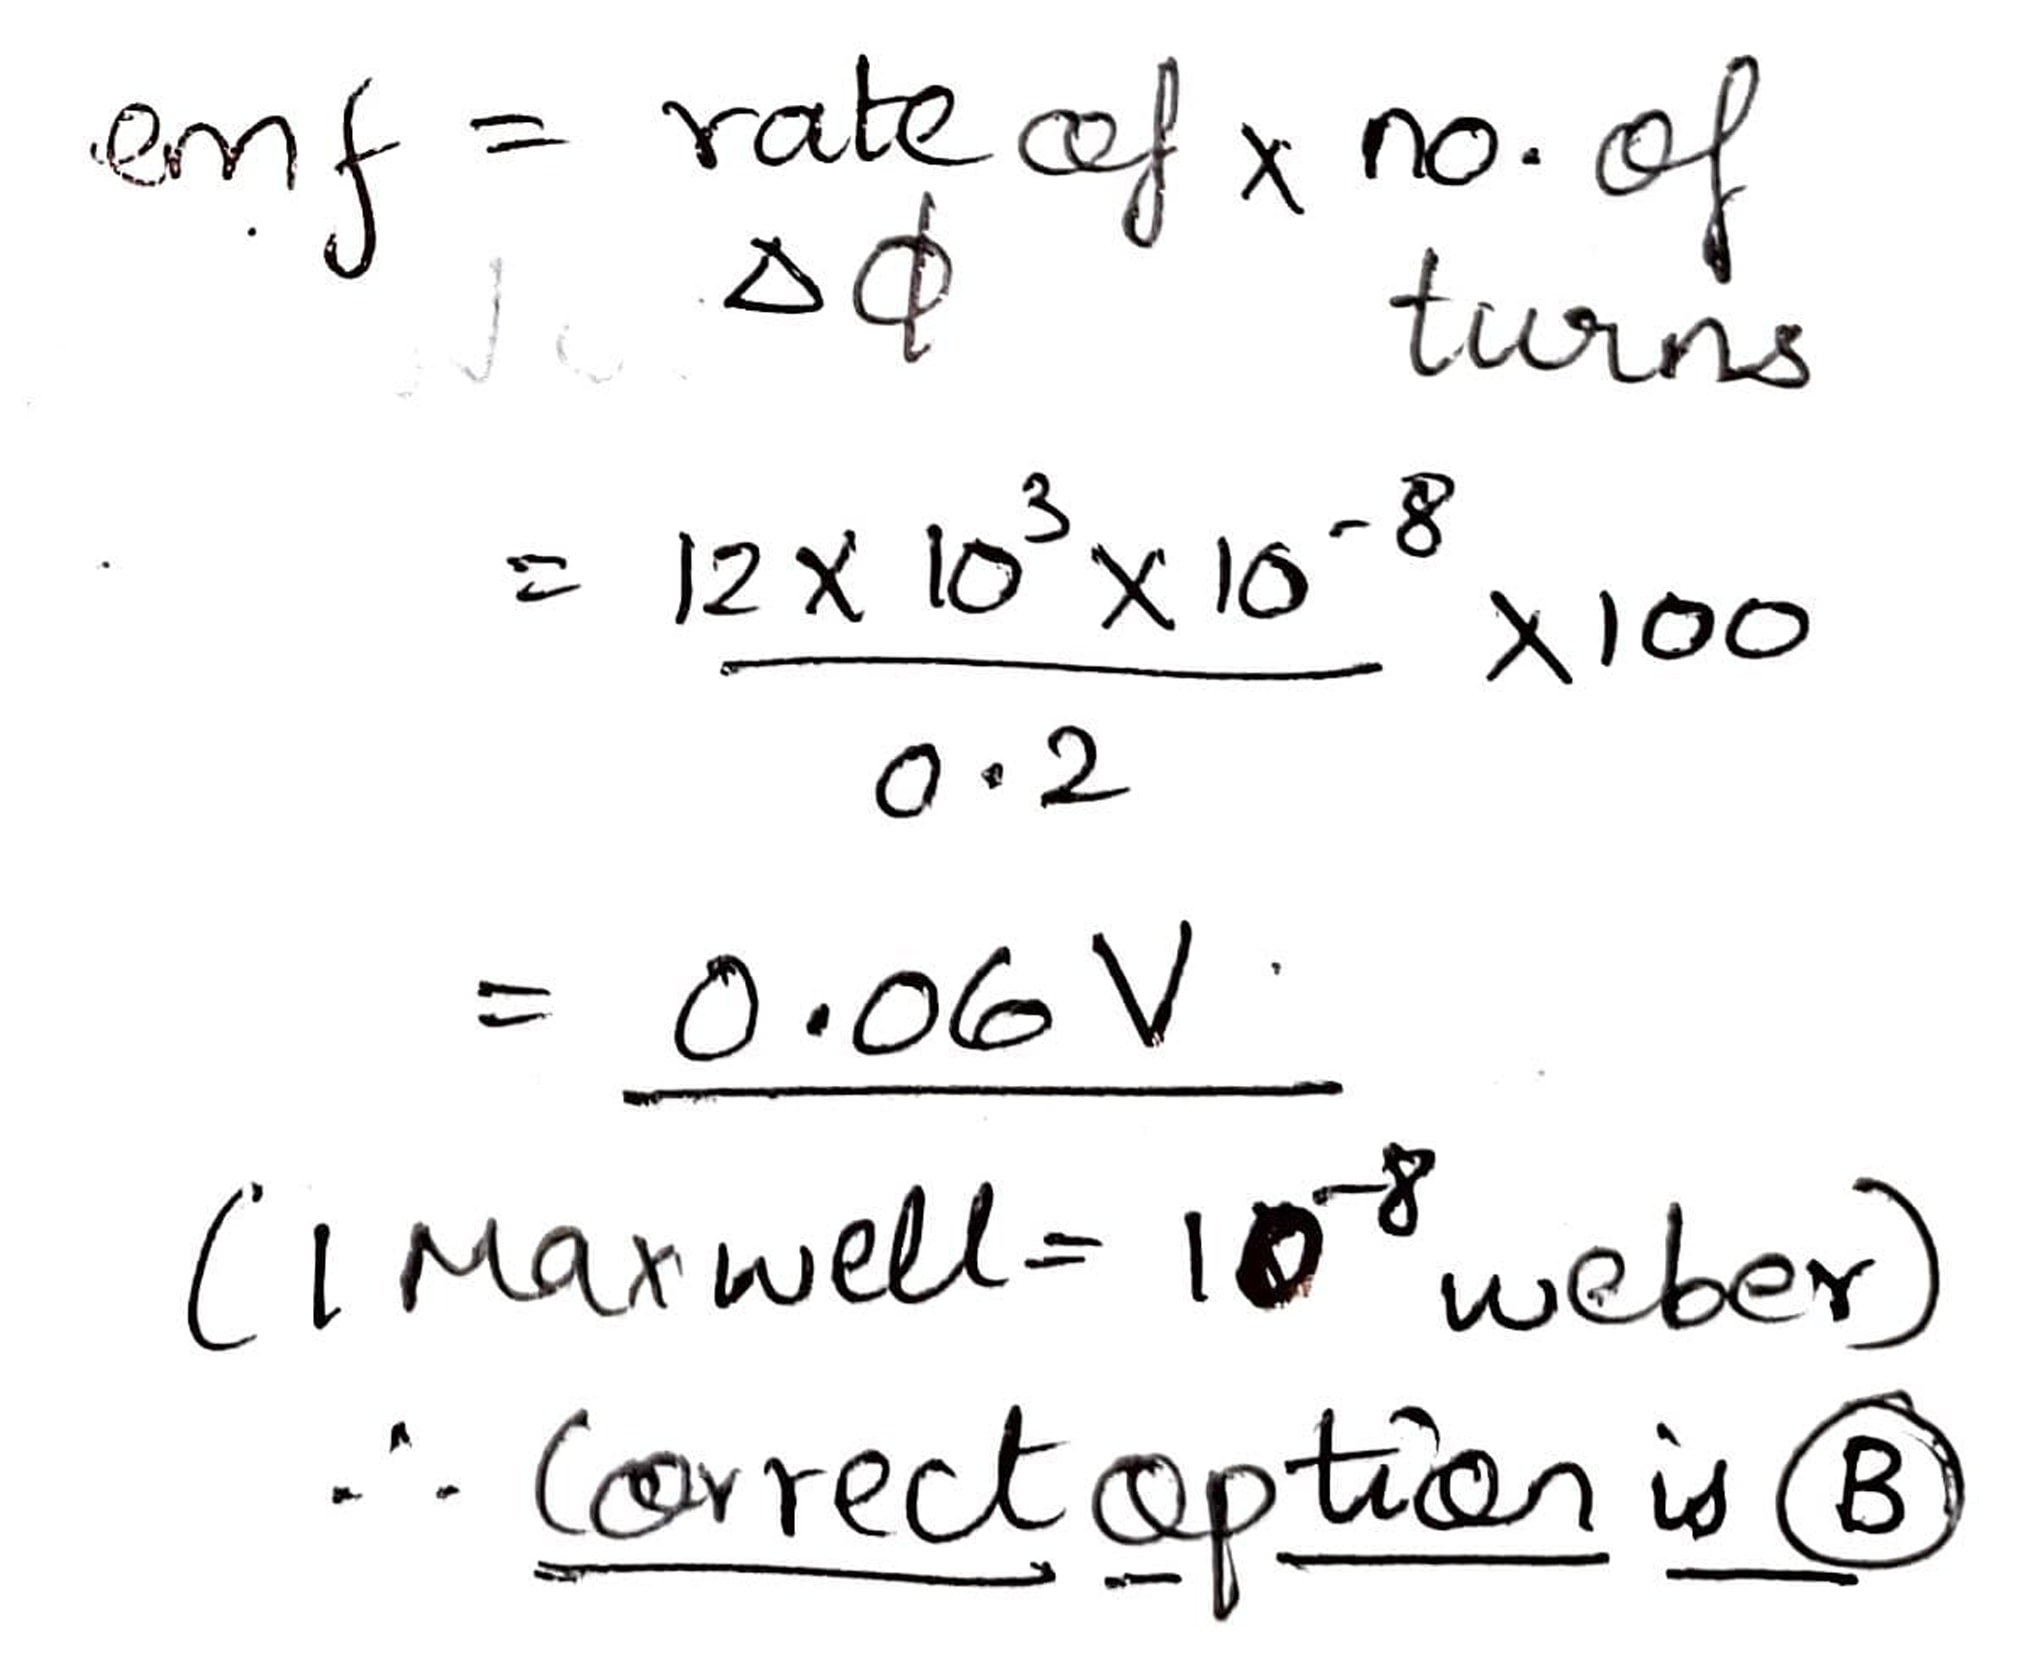 emf = rate of x no. of
Δϕ turns
= 12 x 10³ x 10⁻⁸ x 100
0.2
= 0.06 V
(1 Maxwell = 10⁻⁸ weber)
∴ Correct option is B